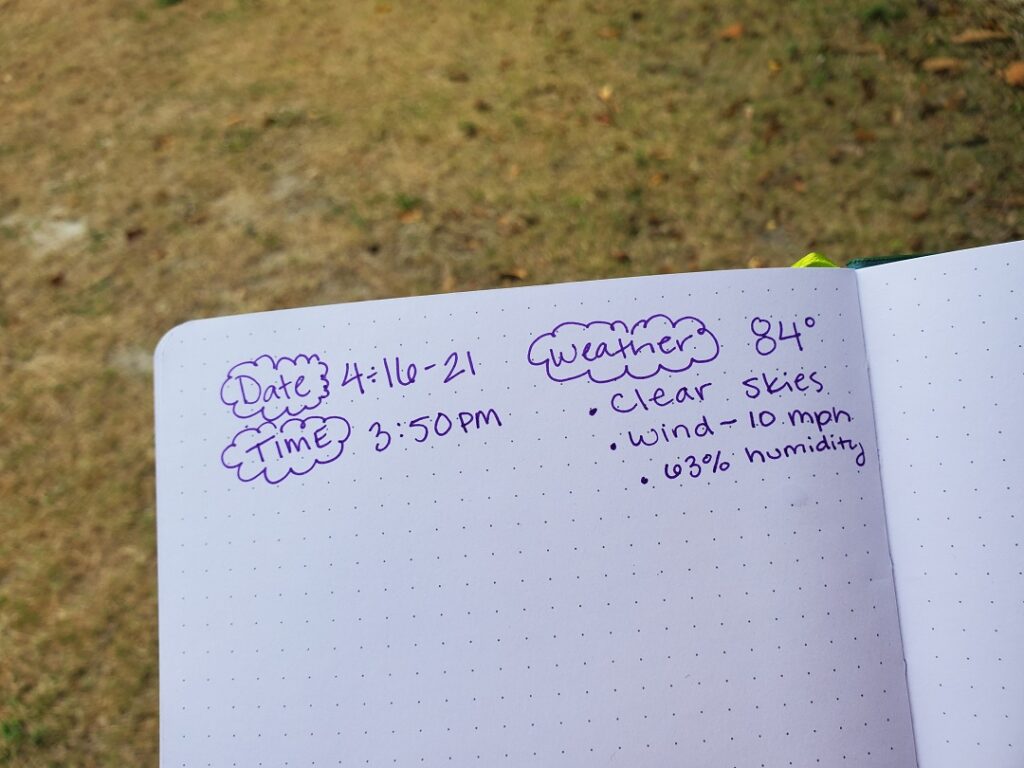 Date 4-16-21
Time 3:50pm
Weather 84°
• clear skies
• wind - 10 mph
• 63% humidity